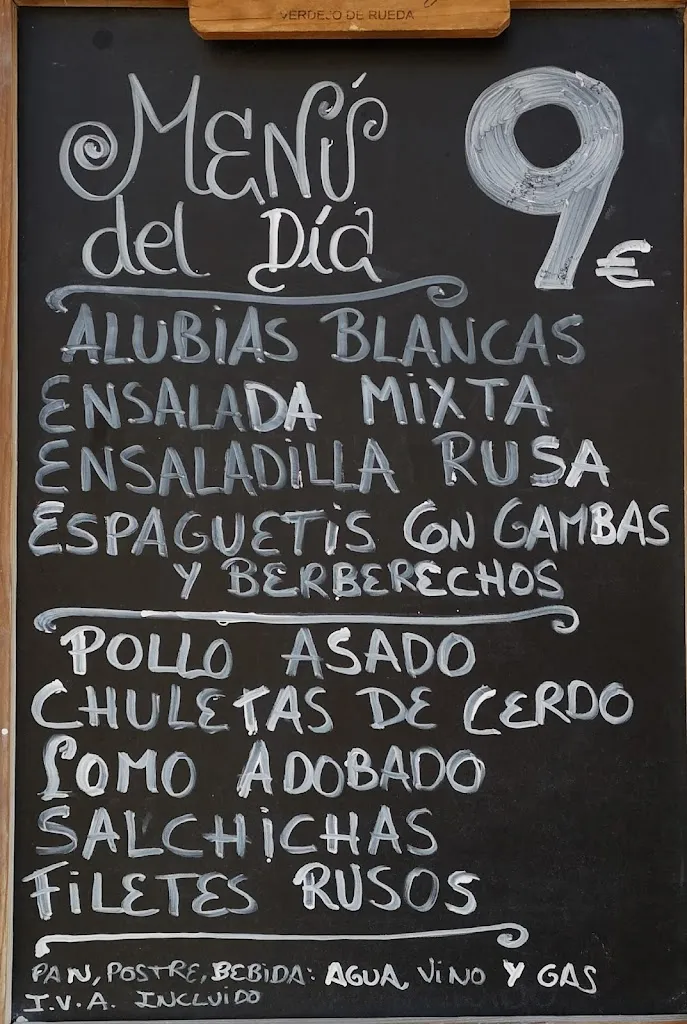 VERDEJO DE RUEDA
MENÚ
del Día
9 €
ALUBIAS BLANCAS
ENSALADA MIXTA
ENSALADILLA RUSA
ESPAGUETIS CON GAMBAS
Y BERBERECHOS
POLLO ASADO
CHULETAS DE CERDO
LOMO ADOBADO
SALCHICHAS
FILETES RUSOS
PAN, POSTRE, BEBIDA: AGUA, VINO Y GAS
I.V.A. INCLUIDO